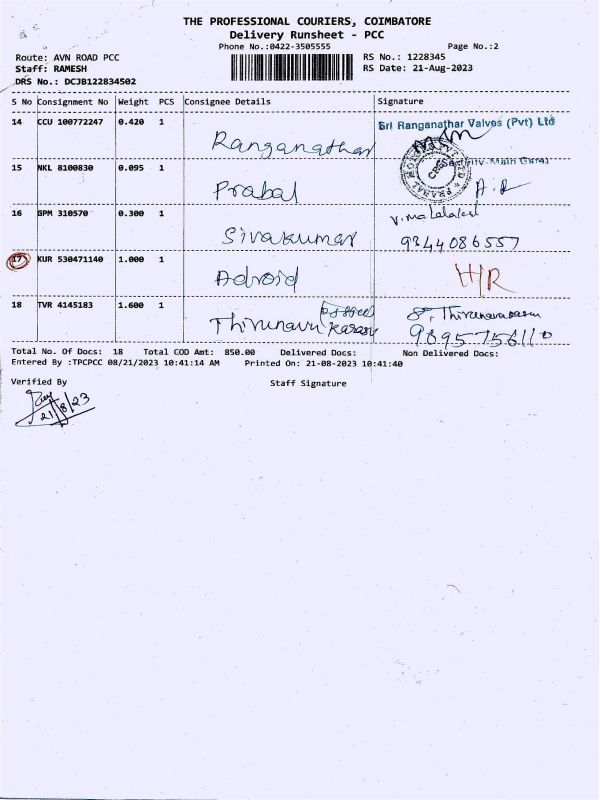 THE PROFESSIONAL COURIERS, COIMBATORE
Delivery Runsheet - PCC
Phone No.:0422-3505555
Page No.:2
Route: AVN ROAD PCC
RS No.: 1228345
Staff: RAMESH
RS Date: 21-Aug-2023
DRS No.: DCJB122834502
S No Consignment No Weight PCS Consignee Details Signature
14 CCU 100772247 0.420 1 Sri Ranganathar Valves (Pvt) Ltd
Ranganathar
15 NKL 8100830 0.095 1 Security Main Gate
Prabal
16 GPM 310570 0.300 1
Sivakumar 9344086557
17 KUR 530471140 1.000 1
Adroid H/R
18 TVR 4145183 1.600 1 S. Thirunavukarasu
Thirunavukarasu
Total No. Of Docs: 18 Total COD Amt: 850.00 Delivered Docs: Non Delivered Docs:
Entered By :TPCPCC 08/21/2023 10:41:14 AM Printed On: 21-08-2023 10:41:40
Verified By Staff Signature
21/8/23